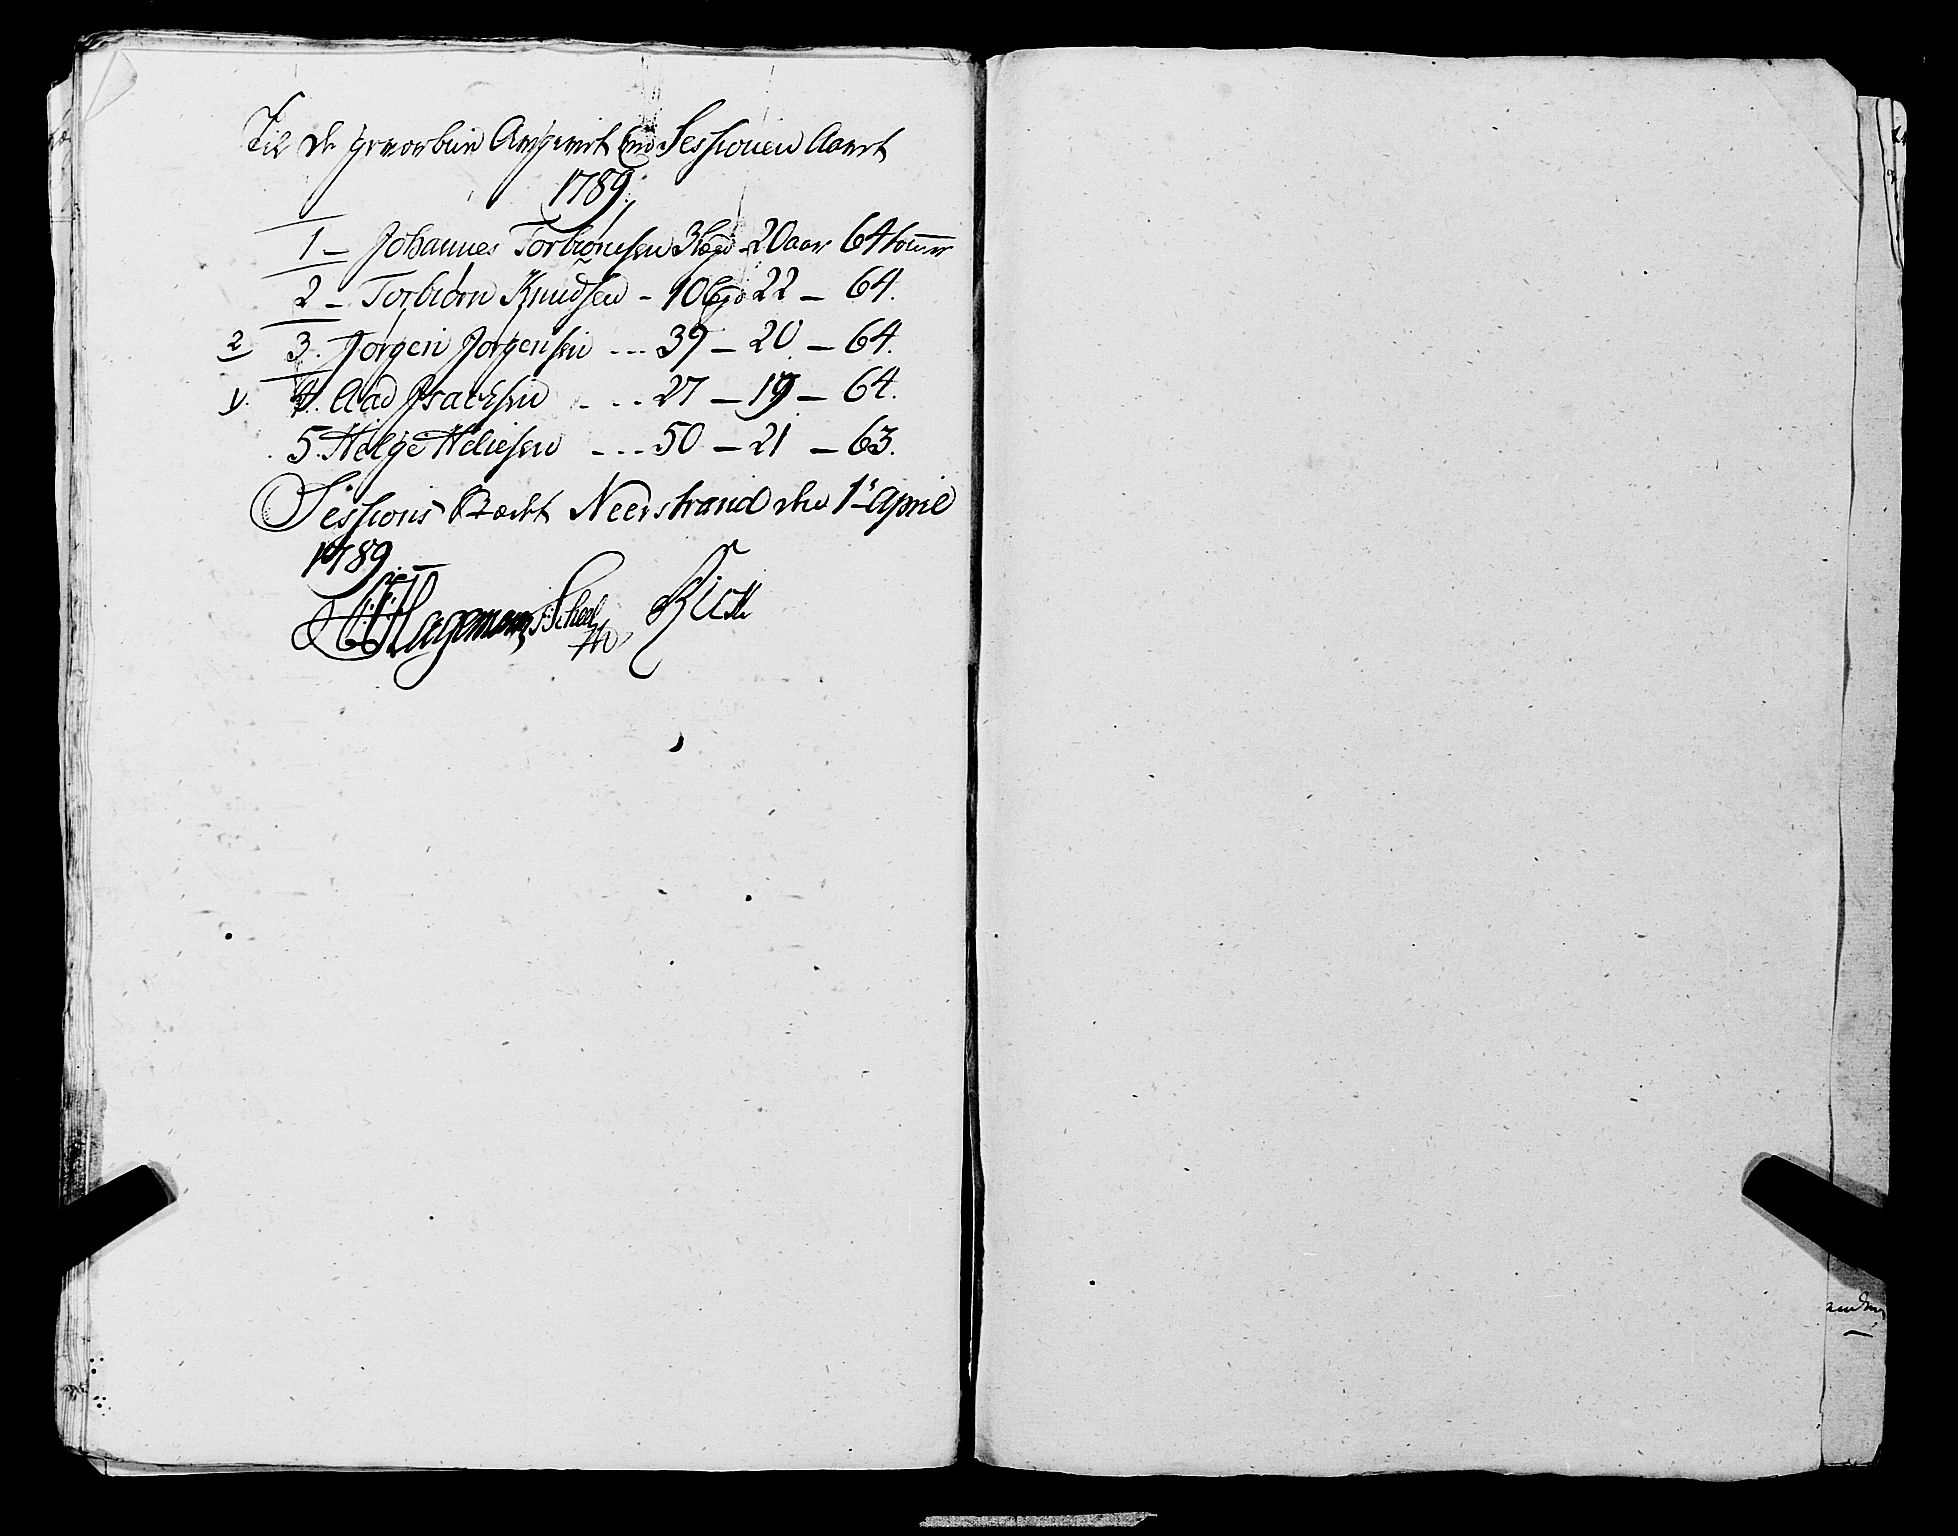 Til de
Sessionen Aaret
1789.
1 - Johannes Torbiørnsen 3 Læg - 20 aar 64 tommer
2 - Torbiørn Knudsen - 10 22 - 64.
2 3. Jørgen Jørgensen - - - 39 - 20 - 64.
1. 4. Aad Isachsen - - - 27 - 19 - 64.
5. Helge Heliesen - - - 50 - 21 - 63.
Sessions Neerstrand den 1te April
1789.
Hagemann Scheel